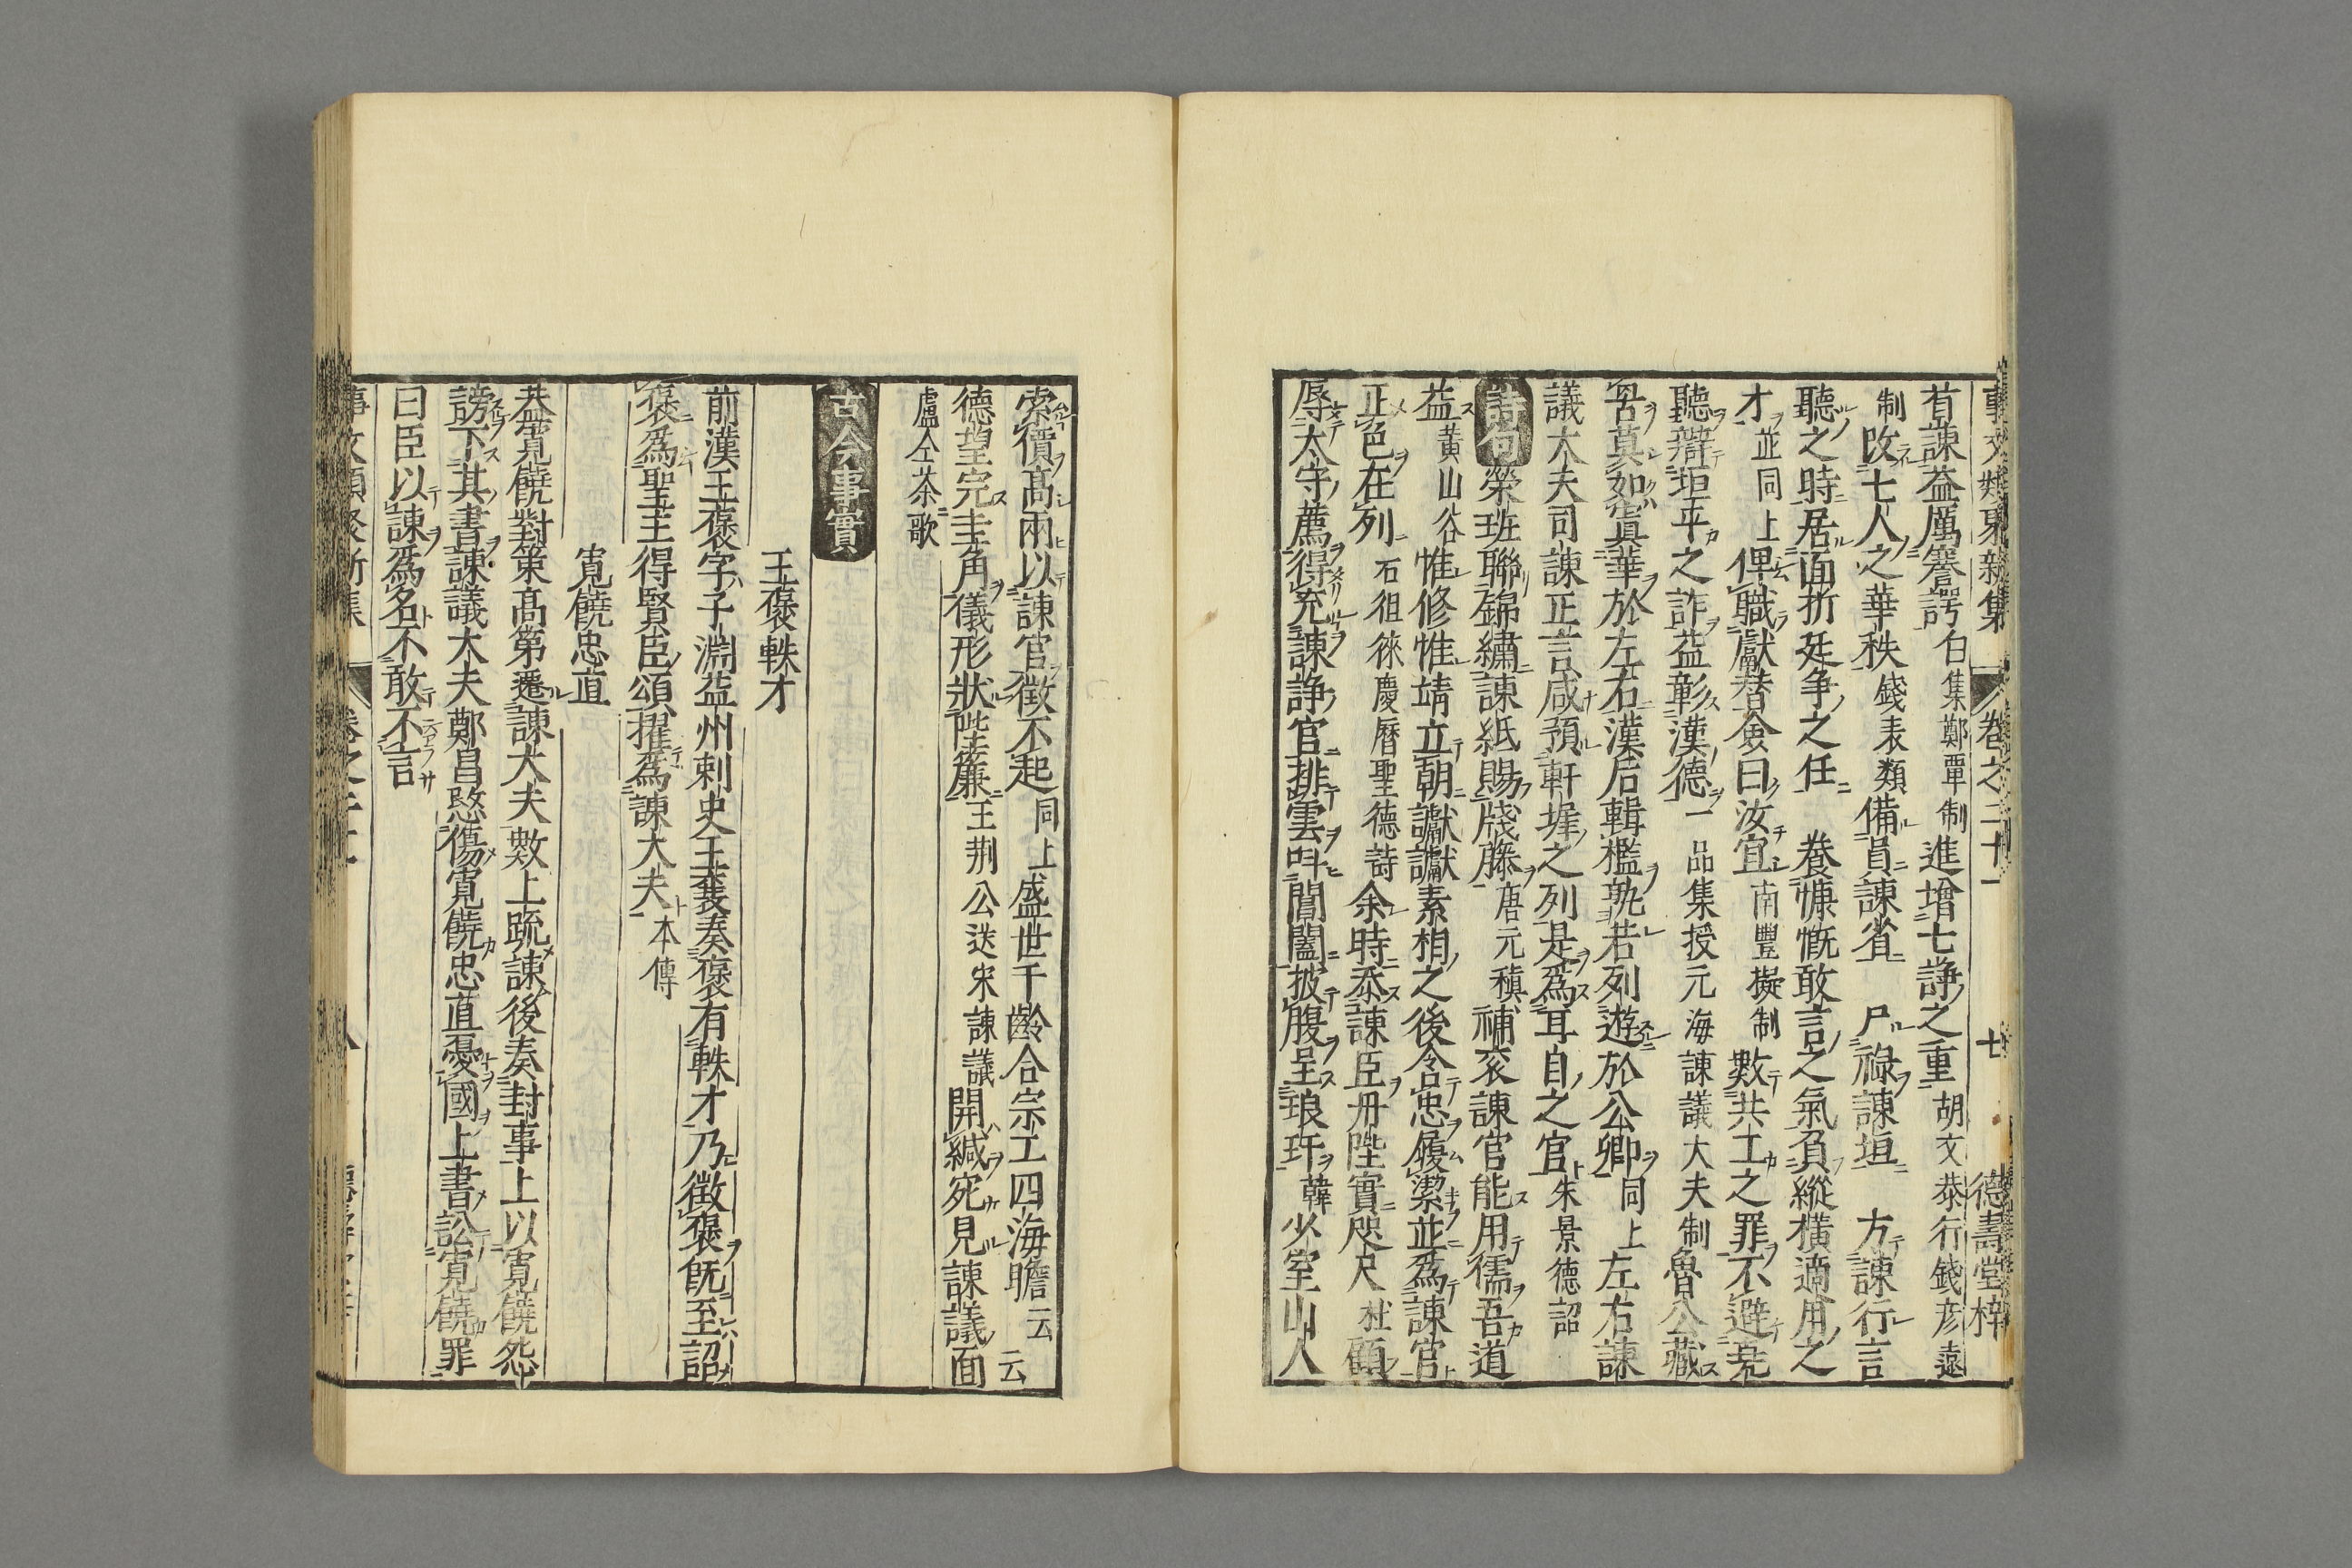 事文類聚新集 卷之二十一 七 德壽堂梓
有諫益厲謇諤白集鄭覃制進增七諍之重胡文恭行錢彥遠
制改七人之華秩錢表類備員諫省 尸祿諫垣 方諫行言
聽之時居面折廷争之任 養慷慨敢言之氣負縱橫適用之
才並同上俾職獻替僉曰汝宜南豐擬制數共工之罪不避堯
聽辯垣平之詐益彰漢德一品集授元海諫議大夫制魯公藏
罟莫如寘華於左右漢后輯檻孰若列遊於公卿同上左右諫
議大夫司諫正言咸預軒墀之列是爲耳自之官朱景德詔
詩句榮班聯錦繡諫紙賜牋藤唐元稹補衮諫官能用儒吾道
益黄山谷惟修惟靖立朝讞讞素相之後含忠履潔並爲諫官
正色在列石徂徠慶曆聖德詩余時忝諫臣丹陛實咫尺杜顧
辱太守薦得充諫諍官排雲呌閶闔披腹呈琅玕韓少室山人
索價髙兩以諫官徵不起同上盛世千齡合宗工四海瞻云云
德望完圭角儀形狀陛廉王荆公送宋諫議開緘宛見諫議面
盧仝茶歌
古今事實
王襃軼才
前漢王襃字子淵益州刺史王襄奏襃有軼才乃徵襃旣至詔
襃爲聖主得賢臣頌擢爲諫大夫本傳
寛饒忠直
葢寛饒對策髙第遷諫大夫數上疏諫後奏封事上以寛饒怨
謗下其書諫議大夫鄭昌愍傷寛饒忠直憂國上書訟寛饒罪
曰臣以諫爲名不敢不言
事文類聚新集 卷之二十一 八